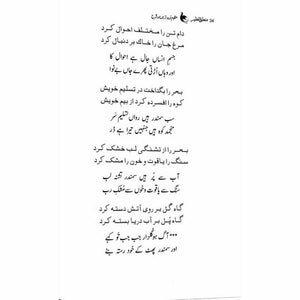 دام تن را مختلف احوال کرد
مرغ جان را خاک بر دنبال کرد
جسم انساں جال ہے احوال کا
اور وہاں اڑتی پھرے جاں بے نوا
بحر را بگذاخت در تسلیم خویش
کوه را افسرده کرد از بیم خویش
سب سمندر ہیں رواں تسلیم سر
منجمد کوہ ہیں جنہیں تیرا ہے ڈر
بحر را از تشنگی لب خشک کرد
سنگ را یاقوت و خون را مشک کرد
آب سے پُر ہیں سمندر تشنہ لب
سنگ سے یاقوت و خوں سے مشک رب
گاه گل بر روی آتش دسته کرد
گاه پُل بر آب دریا بسته کرد
آگ ہو گلزار جب جب تو کہے
اور سمندر پھٹ کے خود رستہ بنے